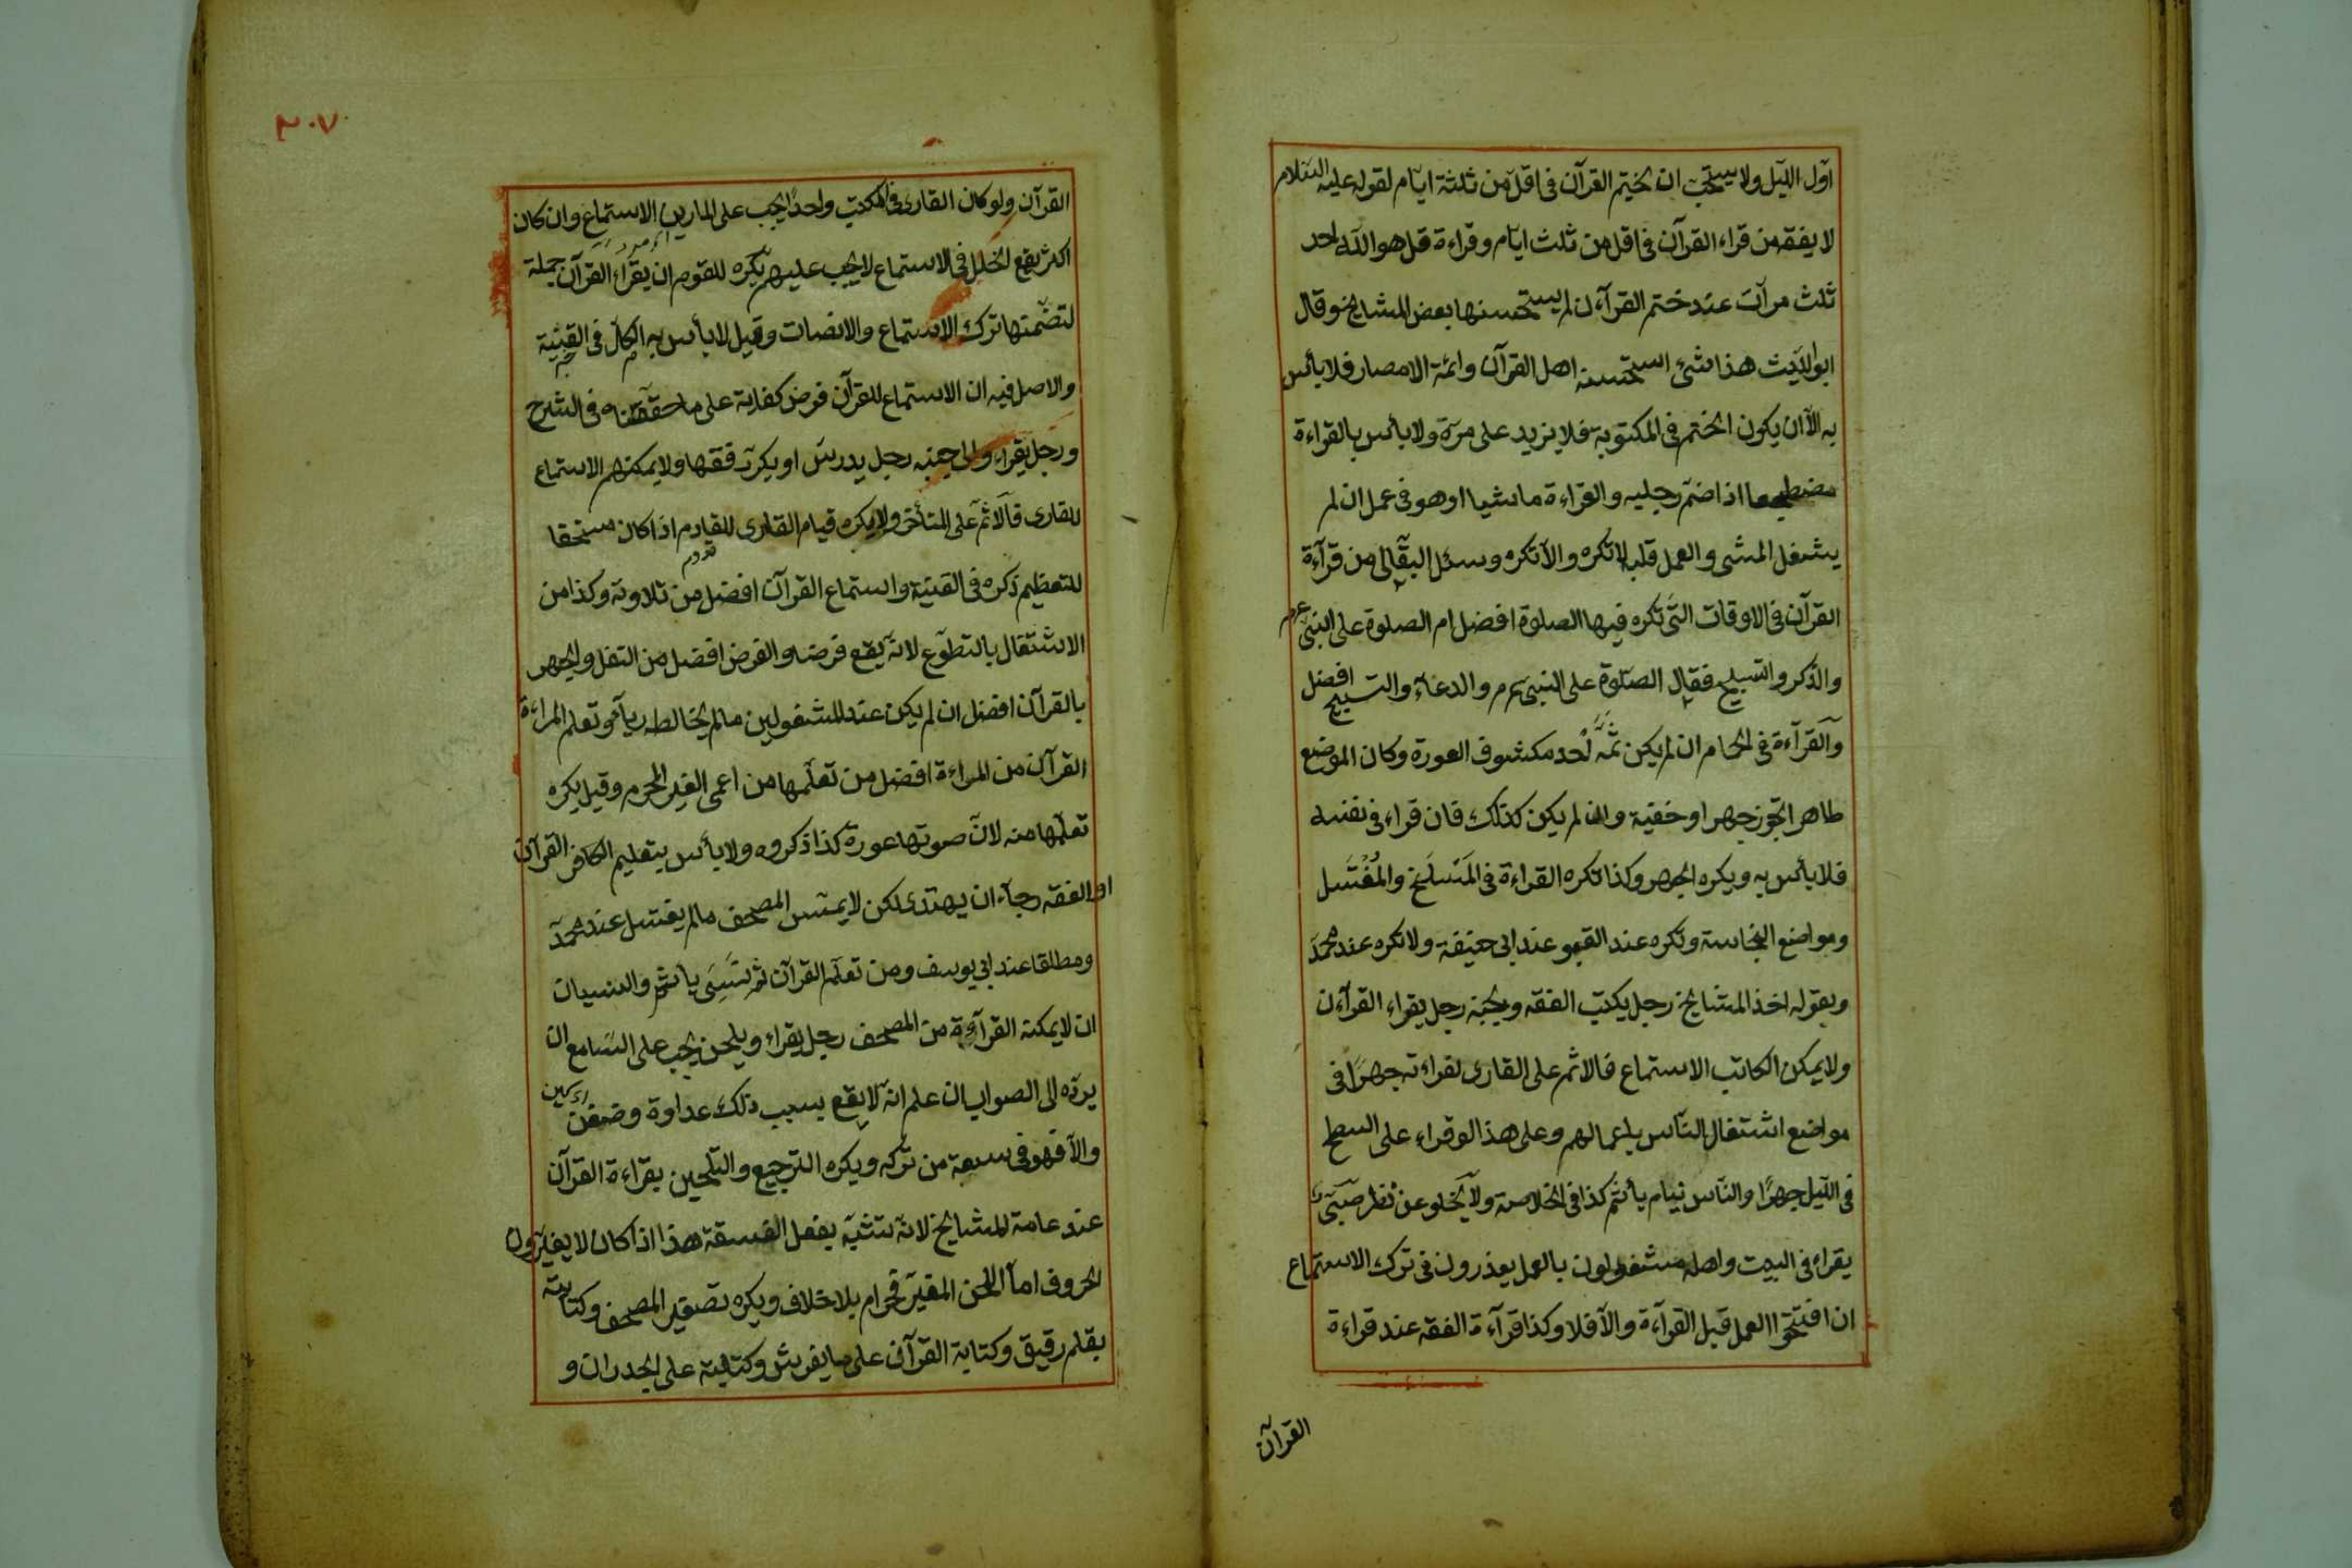 اوّل الليل ولا يستحب ان يختم القرآن فى اقل من ثلثة ايّام لقوله عليه السّلام
لا يفقه من قراء القرآن فى اقل من ثلث ايّام وقراءة قل هو الله احد
ثلث مرآت عند ختم القرآءن لم يستحسنها بعض المشايخ وقال
ابو الليّث هذا شئ استحسنه اهل القرآن وائمة الامصار فلا بأس
به الّا ان يكون الختم فى المكتوبة فلا يزيد على مرّة ولا بأس بالقراءة
مضطجعا اذا ضمّ رجليه والقراءة ماشيا او هو فى عمل ان لم
يشغل المشى والعمل قلبه لا تكره والّا تكره وسئل البقّالى من قرآءة
القرآن فى الاوقات التّى تكره فيها الصلوة افضل ام الصلوة على النبىّ عم
والذّكر والتسبيح فقال الصّلوة على النبى عم والدعاء والتسبيح افضل
والقرآءة فى الحمام ان لم يكن ثمّه احد مكشوف العورة وكان الموضع
طاهرا تجوز جهرا وخفية وان لم يكن كذلك فان قراء فى نفسه
فلا بأس به ويكره الجهر وكذا تكره القراءة فى المَسْلَخ والمُغْتَسَل
ومواضع النجاسة وتكره عند القبور عند ابى حنيفة ولا تكره عند محمّد
وبقوله اخذ المشايخ رجل يكتب الفقه وبجنبه رجل يقراء القرآءن
ولا يمكن الكاتب الاستماع فالاثم على القارى لقراءته جهرًا فى
مواضع اشتغال النّاس باعمالهم وعلى هذا لو قراء على السطح
فى الليّل جهرًا والنّاس نيام يأثم كذا فى الخلاصة ولا يخلو عن نظر صبىّ
يقراء فى البيت واهله مشغولون بالعمل يعذرون فى ترك الاستماع
ان افتتحوا العمل قبل القرآءة والّا فلا وكذا قرآءة الفقه عند قراءة
القرآن
٣٠٧
القرآن ولو كان القارى فى المكتب واحدًا يجب على المارين الاستماع وان كان
اكثر يقع الخلل فى الاستماع لا يجب عليهم يكره للقوم ان يقراء القرآن جملة
لتضمّنها ترك الاستماع والانصات وقيل لا بأس به الكل فى القنية
والاصل فيه ان الاستماع للقرآن فرض كفاية على ما حققناه فى الشرح
ورجل يقراء والى جنبه رجل يدرس او يكرّر فقها ولا يمكنهم الاستماع
للقارى فالاثم على المتأخر ولا يكره قيام القارى للقادم اذا كان مستحقا
للتعظيم ذكره فى القنية واستماع القرآن افضل من تلاوته وكذا من
الاشتغال بالتطوّع لانّه يقع فرضا والفرض افضل من النفل والجهر
بالقرآن افضل ان لم يكن عند المشغولين مالم يخالطه رياء وتعلم المراءة
القرآن من المراءة افضل من تعلّمها من اعمى الغير المحرم وقيل يكره
تعلّمها منه لانّ صوتها عورة كذا ذكروه ولا بأس بتعليم الكافر القرآن
او الفقه رجاء ان يهتدى لكن لا يمسّ المصحف مالم يغتسل عند محمّد
ومطلقا عند ابى يوسف ومن تعلّم القرآن ثم نَسِىَ يأثم والنسيان
ان لا يمكنه القرآءة من المصحف رجل يقراء ويلحن يجب على السّامع ان
يردّه الى الصواب ان علم انّه لا يقع بسبب ذلك عداوة وضغن
والّا فهو فى سعة من تركه ويكره الترجيع والتلحين بقراءة القرآن
عند عامة المشايخ لانّه تشبّه بفعل الفسقة هذا اذا كان لا يغيّرون
الحروف امّا اللحن المغيّر فحرام بلا خلاف ويكره تصغير المصحف وكتابته
بقلم رقيق وكتابة القرآن على ما يفرش وكتابته على الجدران و